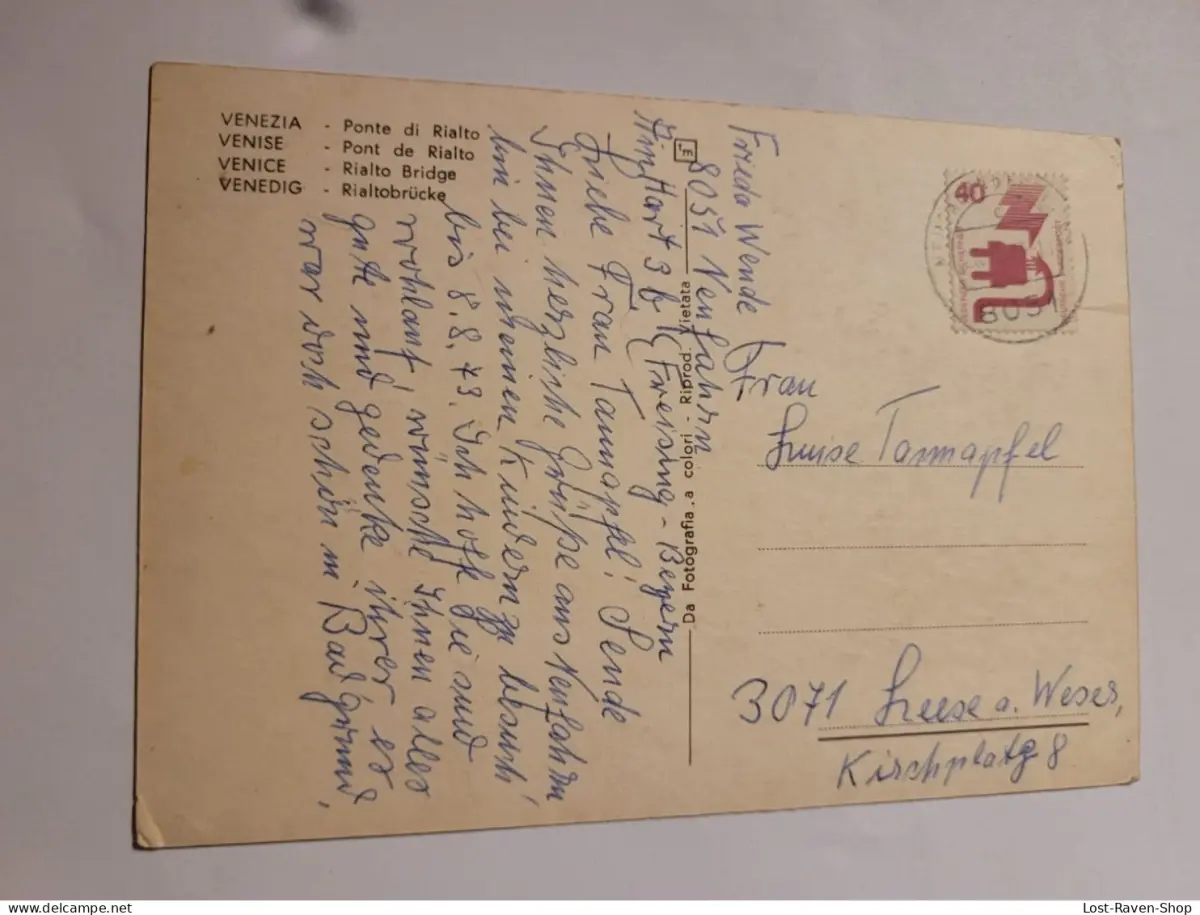 VENEZIA - Ponte di Rialto
VENISE - Pont de Rialto
VENICE - Rialto Bridge
VENEDIG - Rialtobrücke
Frieda Wende
8051 Neufahrn
Hart 3 b (Freising - Bayern
Liebe Frau Tannapfel! Sende
Ihnen herzliche Grüße aus Neufahrn
bin bei meinen Kindern zu besuch
bis 8.8.73. Ich hoffe Sie sind
wohlauf, wünsche Ihnen alles
gute und gedenke ihrer, es
war doch schön in Bad
Da Fotografia a colori - Riprod. Vietata
40
8051
Frau
Luise Tannapfel
3071 Leese a. Weser,
Kirchplatz 8
Lost-Raven-Shop